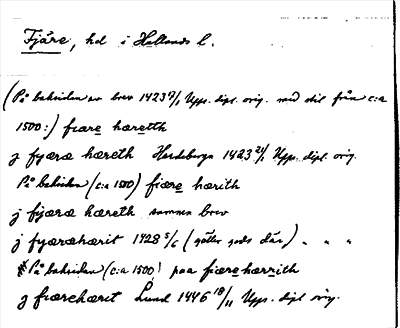 Fjäre, hd i Hallands l.
(På baksidan av brev 1423 9/1 Upps. dipl. orig. med stil från c:a
1500:) fiære hæretth
j fyæræ hæreth Hardeberga 1423 24/1 Upps. dipl. orig.
På baksidan (c:a 1500) fiære hærith
j fijæræ hæreth samma brev
j fyæræhærit 1428 5/6 (gäller gods där) " " "
På baksidan (c:a 1500) paa fiærehærrith
j fiærehærit Lund 1446 18/11 Upps. dipl. orig.